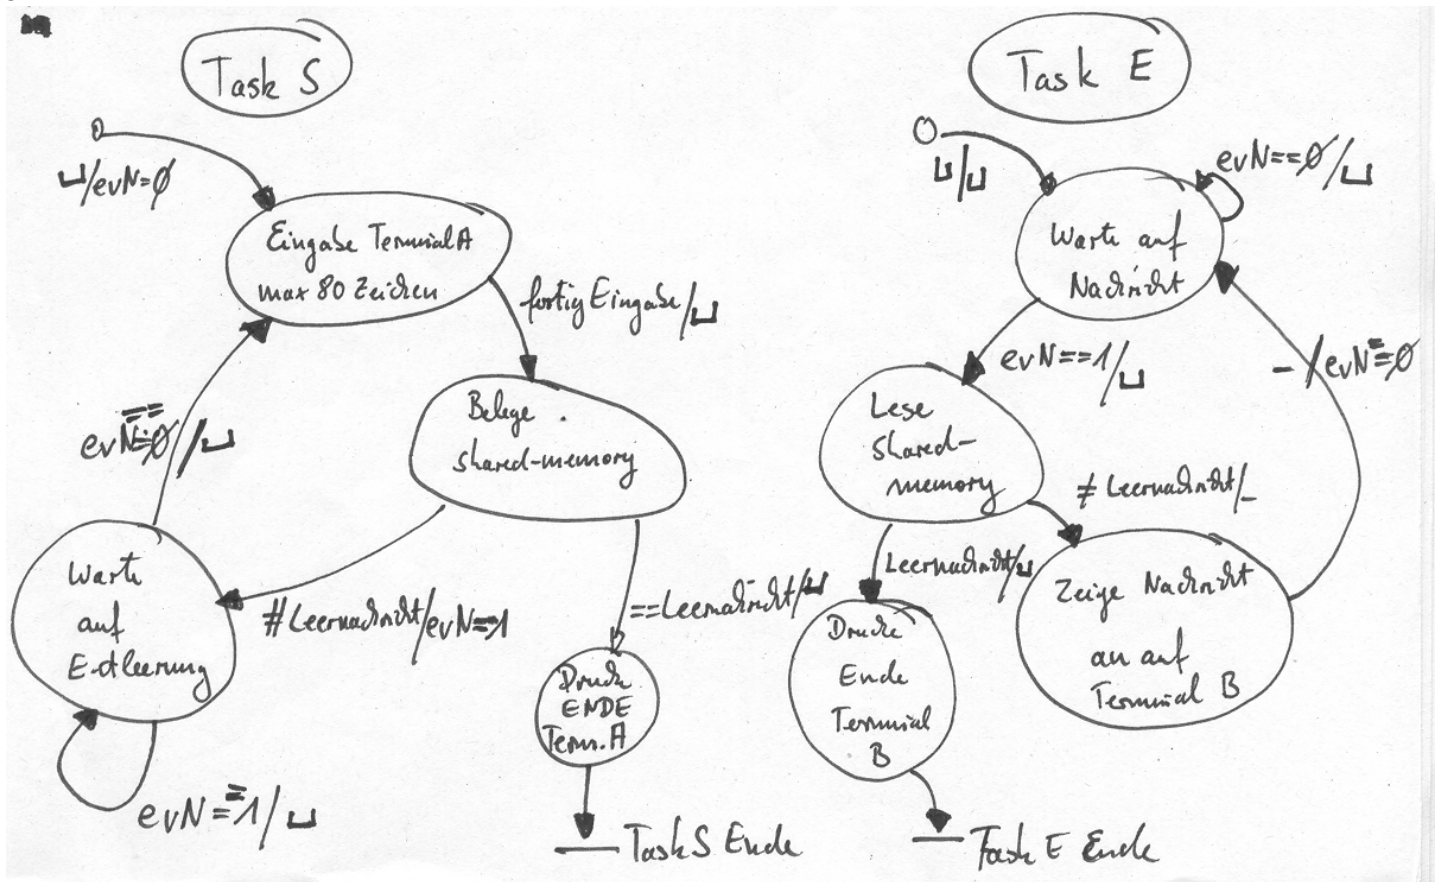 Task S
⊔/evN=0
Eingabe Terminal A
max 80 Zeichen
fertig Eingabe/⊔
evN==0/⊔
Belege
shared-memory
Warte
auf
Entleerung
≠Leernachricht/evN=1
==Leernachricht/⊔
Drucke
ENDE
Term. A
evN==1/⊔
Task S Ende
Task E
⊔/⊔
evN==0/⊔
Warte auf
Nachricht
evN==1/⊔
-/evN=0
Lese
shared-
memory
≠ Leernachricht/-
Leernachricht/⊔
Zeige Nachricht
an auf
Terminal B
Drucke
Ende
Terminal
B
Task E Ende